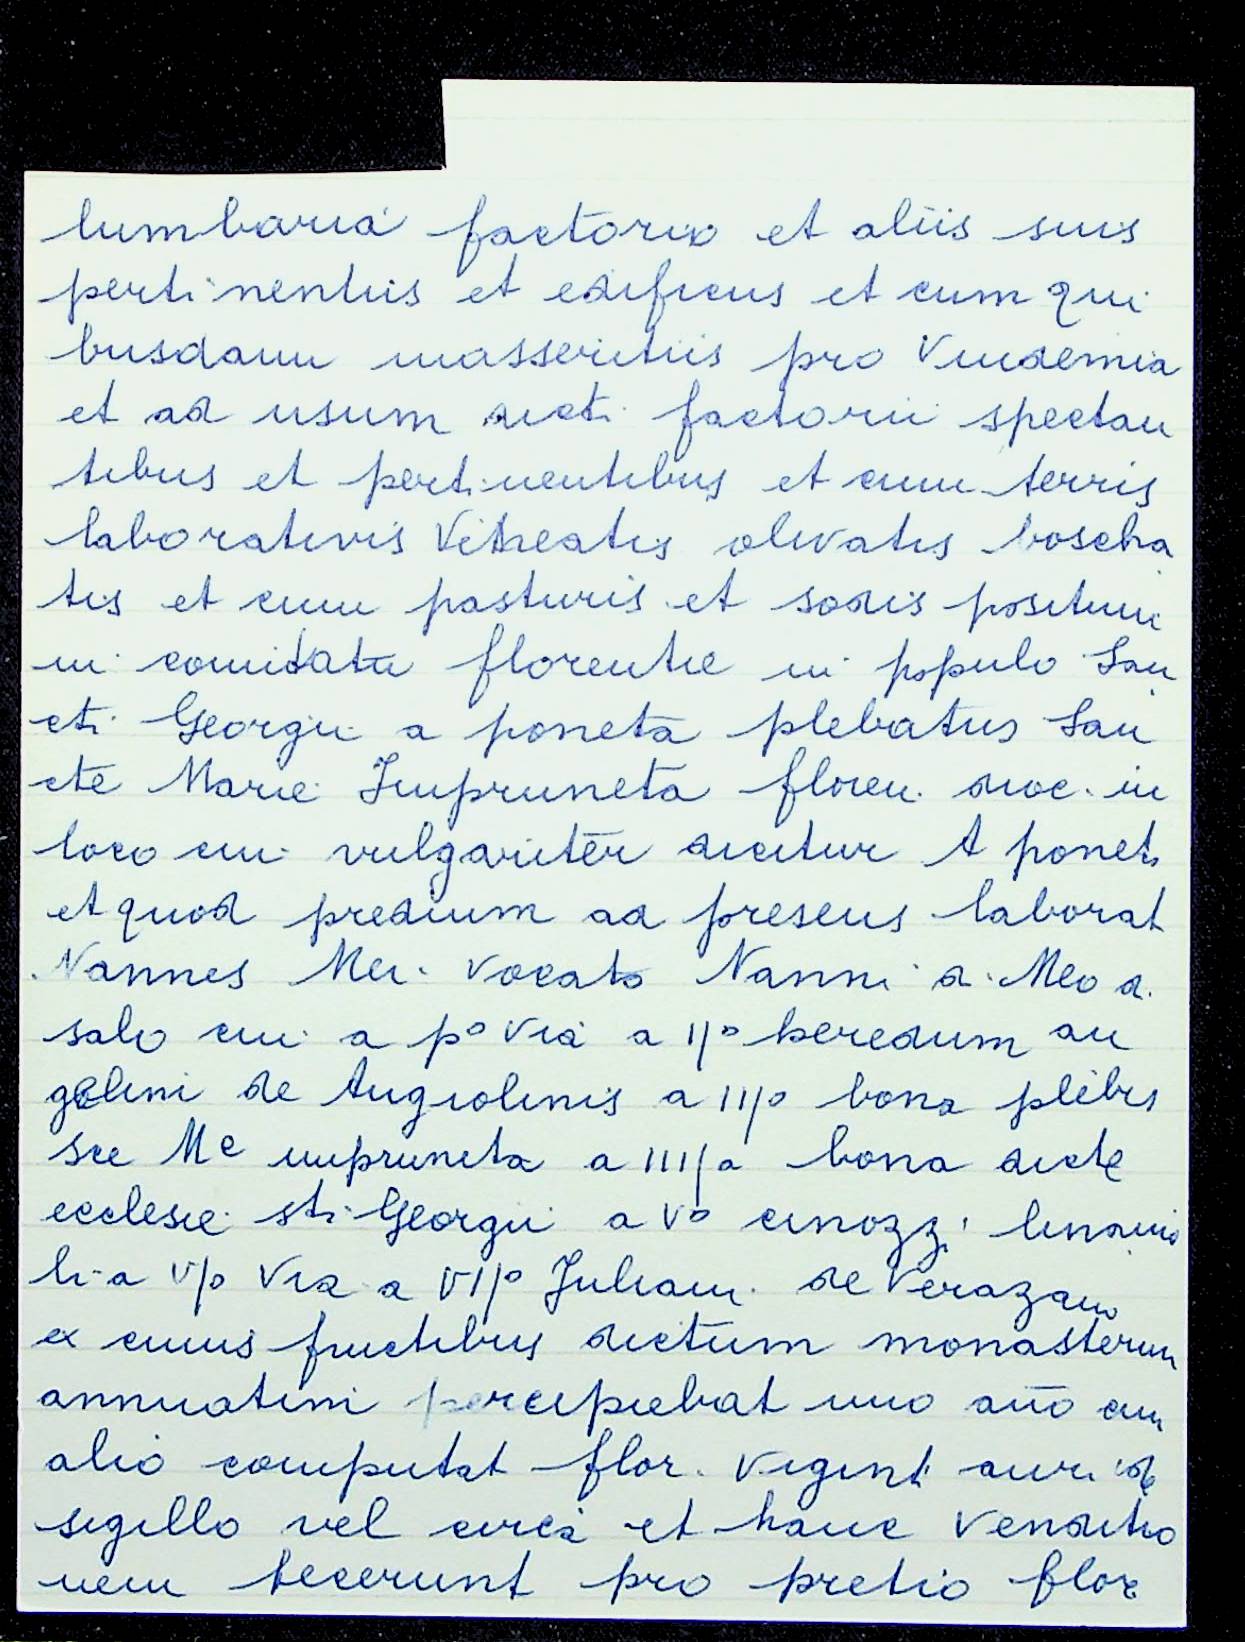 lumbaria factorio et aliis suis
pertinentiis et edificiis et cum qui
busdam masseritiis pro Vindemia
et ad usum dicti factorii spectan
tibus et pertinentibus et cum terris
laborativis Vitneatis olivatis boscha
tis et cum pasturis et sodis positum
in comitatu florentie in populo San
cti Georgii a poneta plebatus San
cte Marie Impruneta floren. dioc. in
loco cui vulgariter dicitur A poneta
et quod predium ad presens laborat
Nannes Mei Vocato Nanni di Meo di
salvo cui a p° Via a II° heredum an
gelini de Angiolinis a III° bona plebis
sce Me impruneta a IIIIa bona dicte
ecclesie sti Georgii a V° cinozzi
a VI° Via a VII° Juliani de Verazano
ex cuius fructibus dictum monasterium
annuatim percipiebat uno año cum
alio computat flor. viginti auri de
sigillo vel circa et hanc Venditio
nem fecerunt pro pretio flor